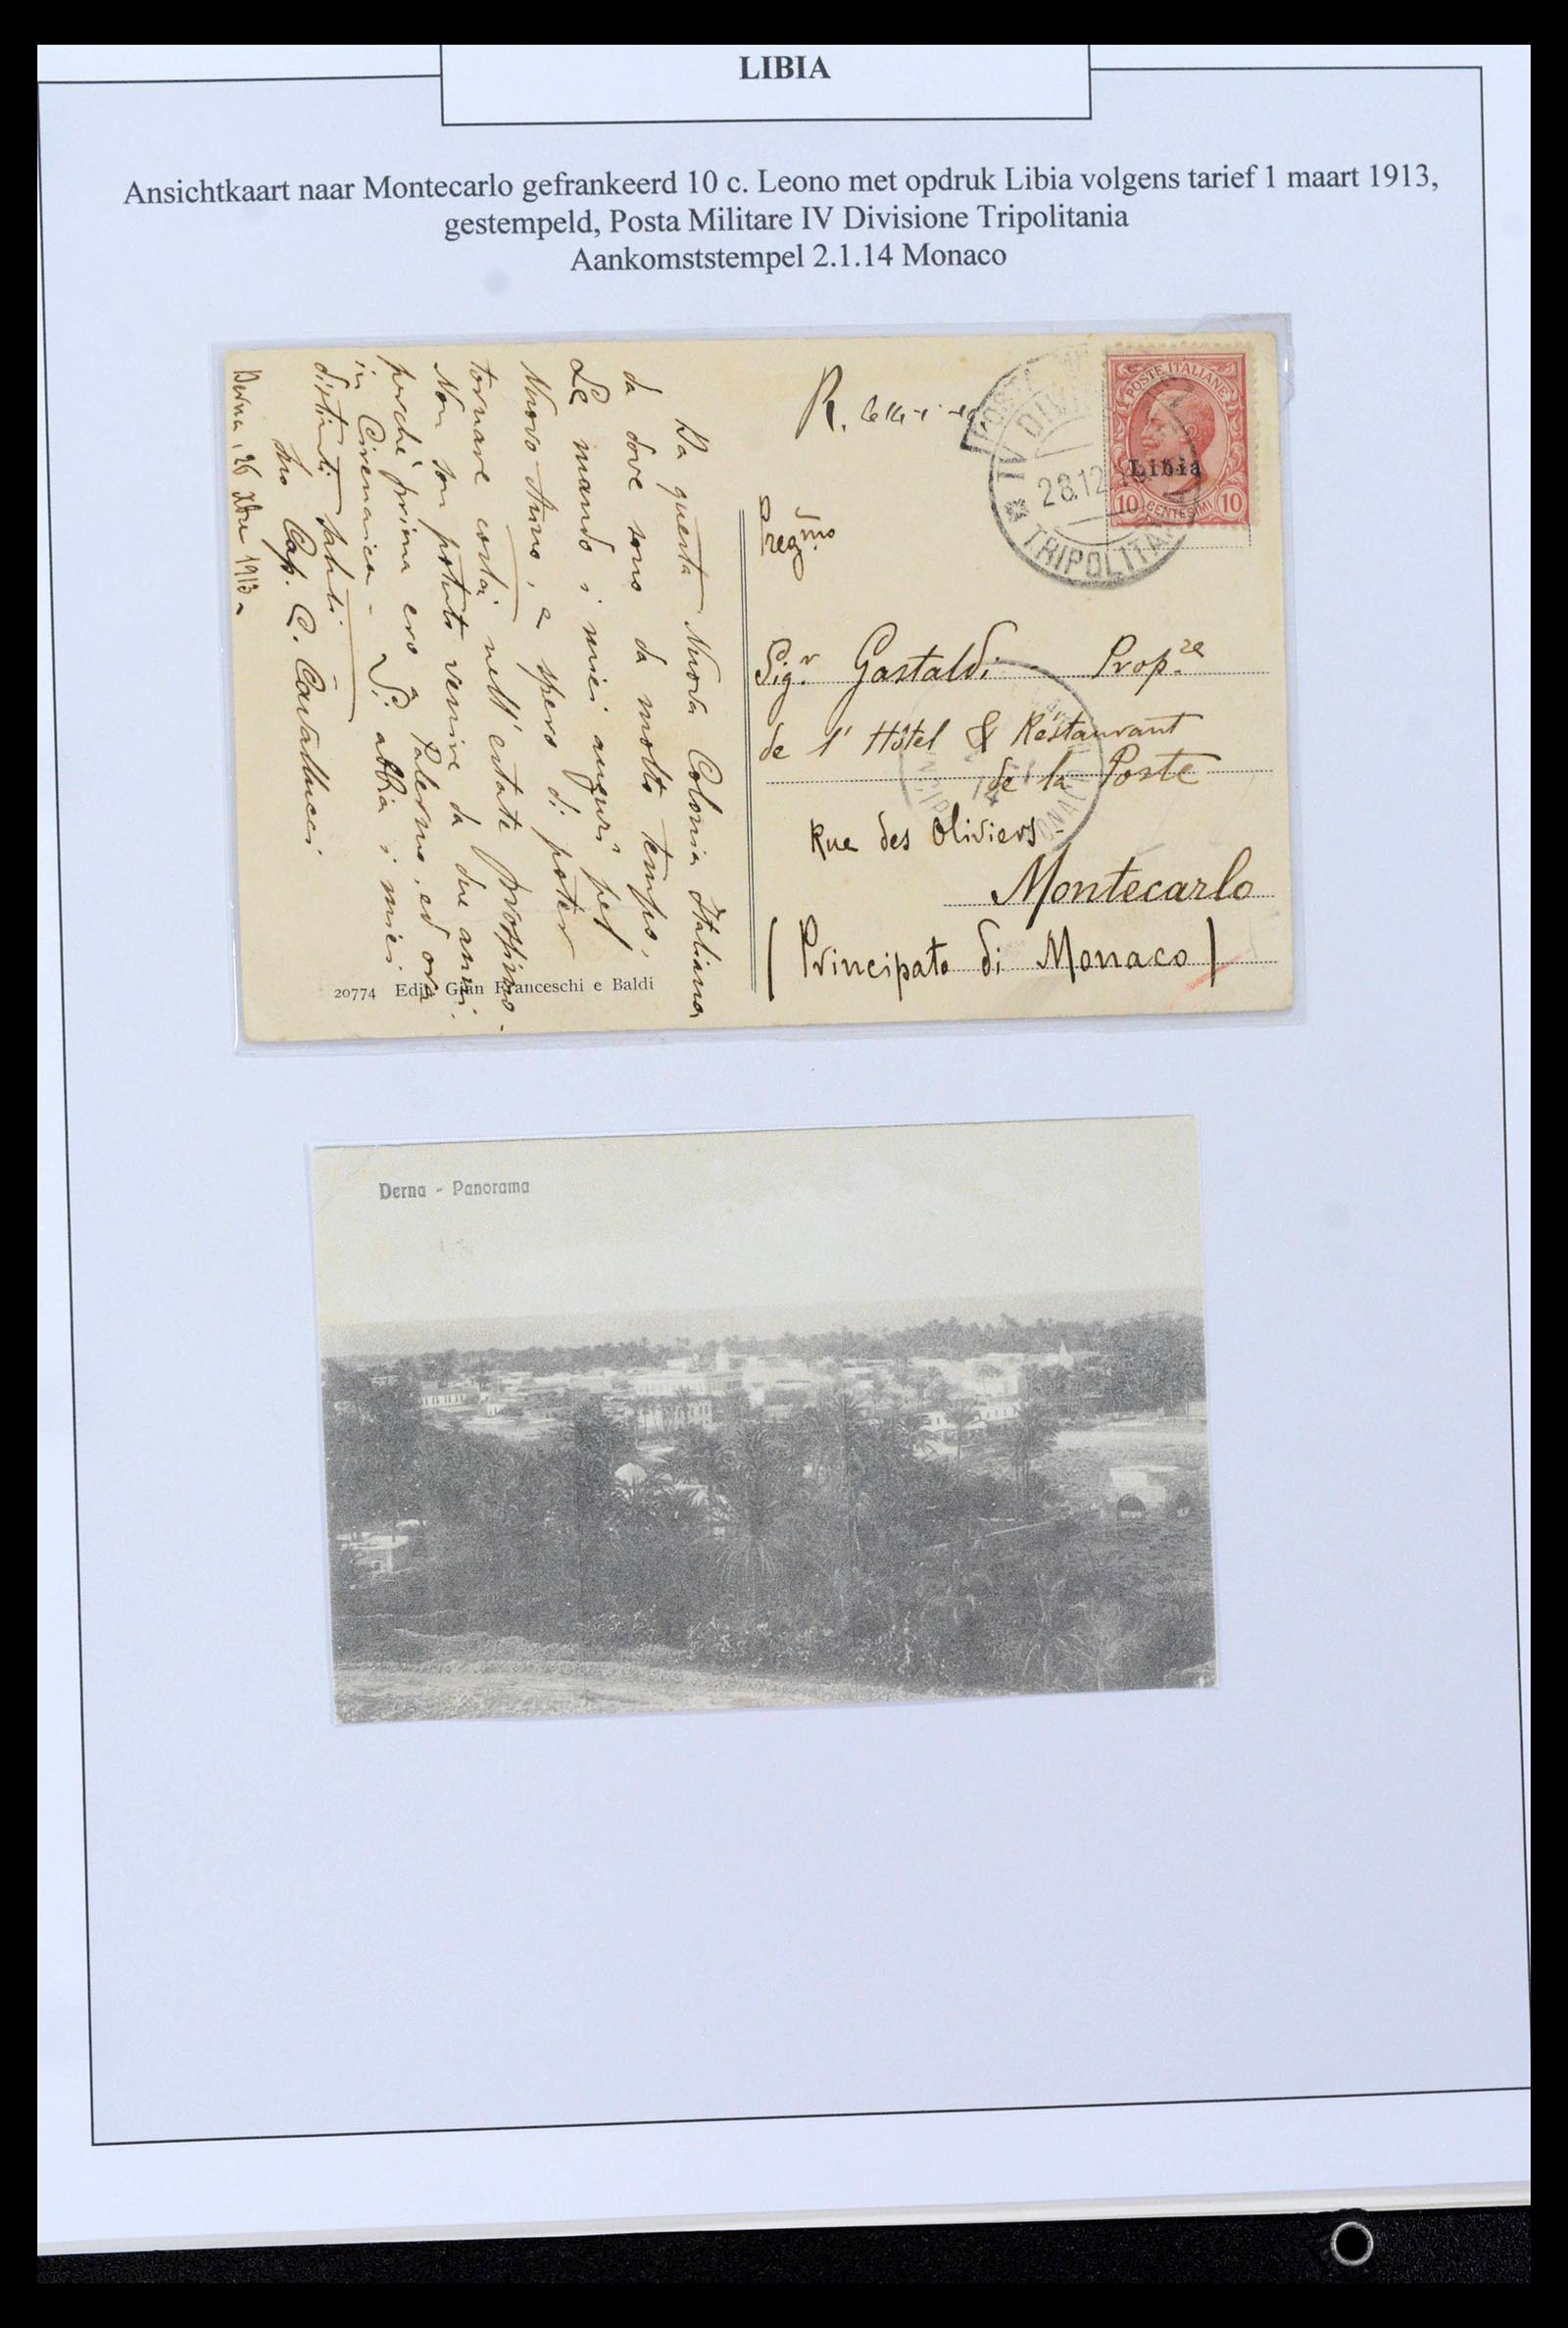 LIBIA
Ansichtkaart naar Montecarlo gefrankeerd 10 c. Leono met opdruk Libia volgens tarief 1 maart 1913,
gestempeld, Posta Militare IV Divisione Tripolitania
Aankomststempel 2.1.14 Monaco
Da questa Nuova Colonia Italiana
da dove sono da molto tempo,
Le mando i miei auguri pel
Nuovo Anno, e spero di poter
tornare costà nell' estate prossimo.
Non son potuto venire da due anni
perché prima ero a Palermo, ed ora
in Cirenaica - Si abbia i miei
distinti saluti
Suo Cap. C. Cavallucci
Derna, 26 Xbre 1913 -
20774 Edit. Gian Franceschi e Baldi
R.
POSTE ITALIANE
Libia
10 CENTESIMI 10
IV DIV
28.12
TRIPOLITA
Preg.mo
Sig.r Gastaldi Prop.re
de l' Hôtel & Réstaurant
de la Poste
Rue des Oliviers
Montecarlo
(Principato di Monaco)
Derna - Panorama